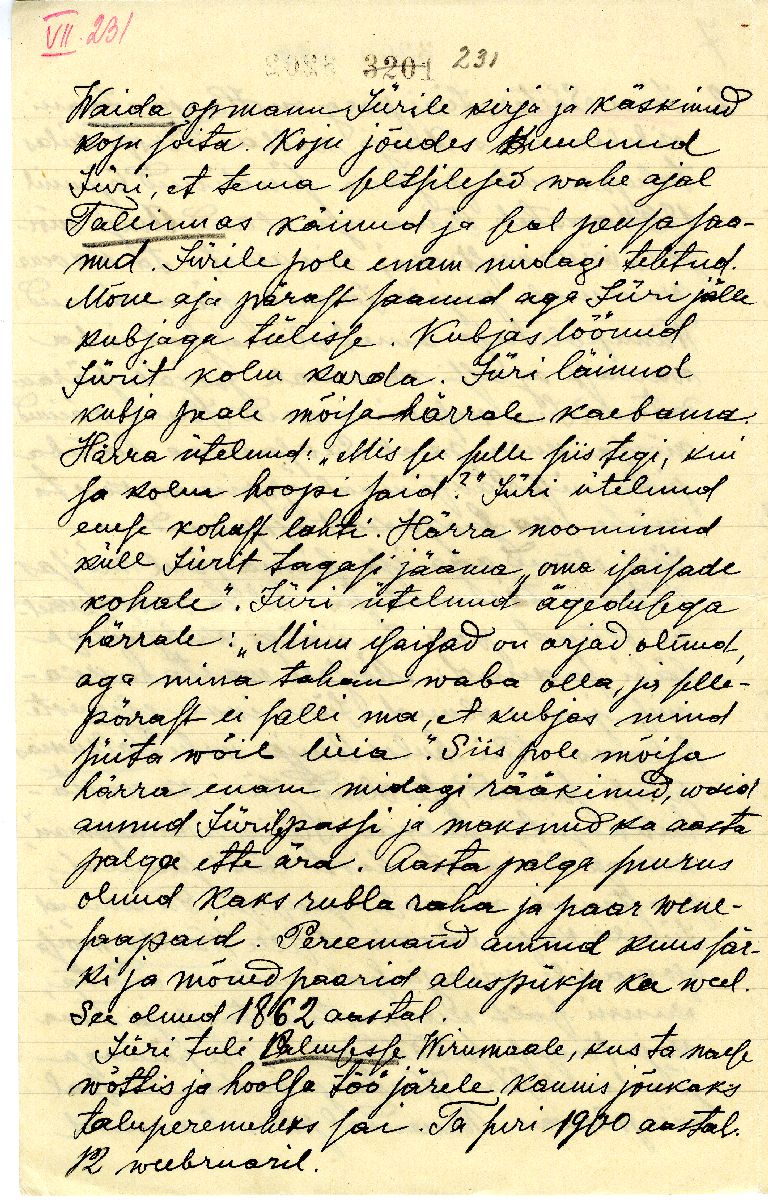 VII. 231
2028 3201 231
Waida opmann Jürile kirja ja käskinud
koju sõita. Koju jõudes kuulnud
Jüri, et tema seltsilesed wahe ajal
Tallinnas käinud ja seal peksa saa-
nud. Jürile pole enam midagi tehtud.
Mõne aja pärast saanud aga Jüri jälle
kubjaga tülisse. Kubjas löönud
Jürit kolm korda. Jüri läinud
kubja peale mõisa härrale kaebama.
Härra ütelnud: „Mis see sulle siis tegi, kui
sa kolm hoopi said?" Jüri ütelnud
enese kohast lahti. Härra noominud
küll Jürit tagasi jääma „oma isaisade
kohale". Jüri ütelnud ägedusega
härrale: „Minu isaisad on orjad olnud,
aga mina tahan waba olla, ja selle-
pärast ei salli ma, et kubjas mind
süita wõib lüia". Siis pole mõisa
härra enam midagi rääkinud, waid
annud Jürile passi ja maksnud ka aasta
palga ette ära. Aasta palga suurus
olnud kaks rubla raha ja paar wene-
saapaid. Pereemand annud kuus sär-
ki ja mõned paarid aluspüksa ka weel.
See olnud 1862 aastal.
Jüri tuli Palmsesse Wirumaale, kus ta naese
wõttis ja hoolsa töö järele kaunis jõukaks
taluperemeheks sai. Ta suri 1900 aastal.
12 weebruaril.